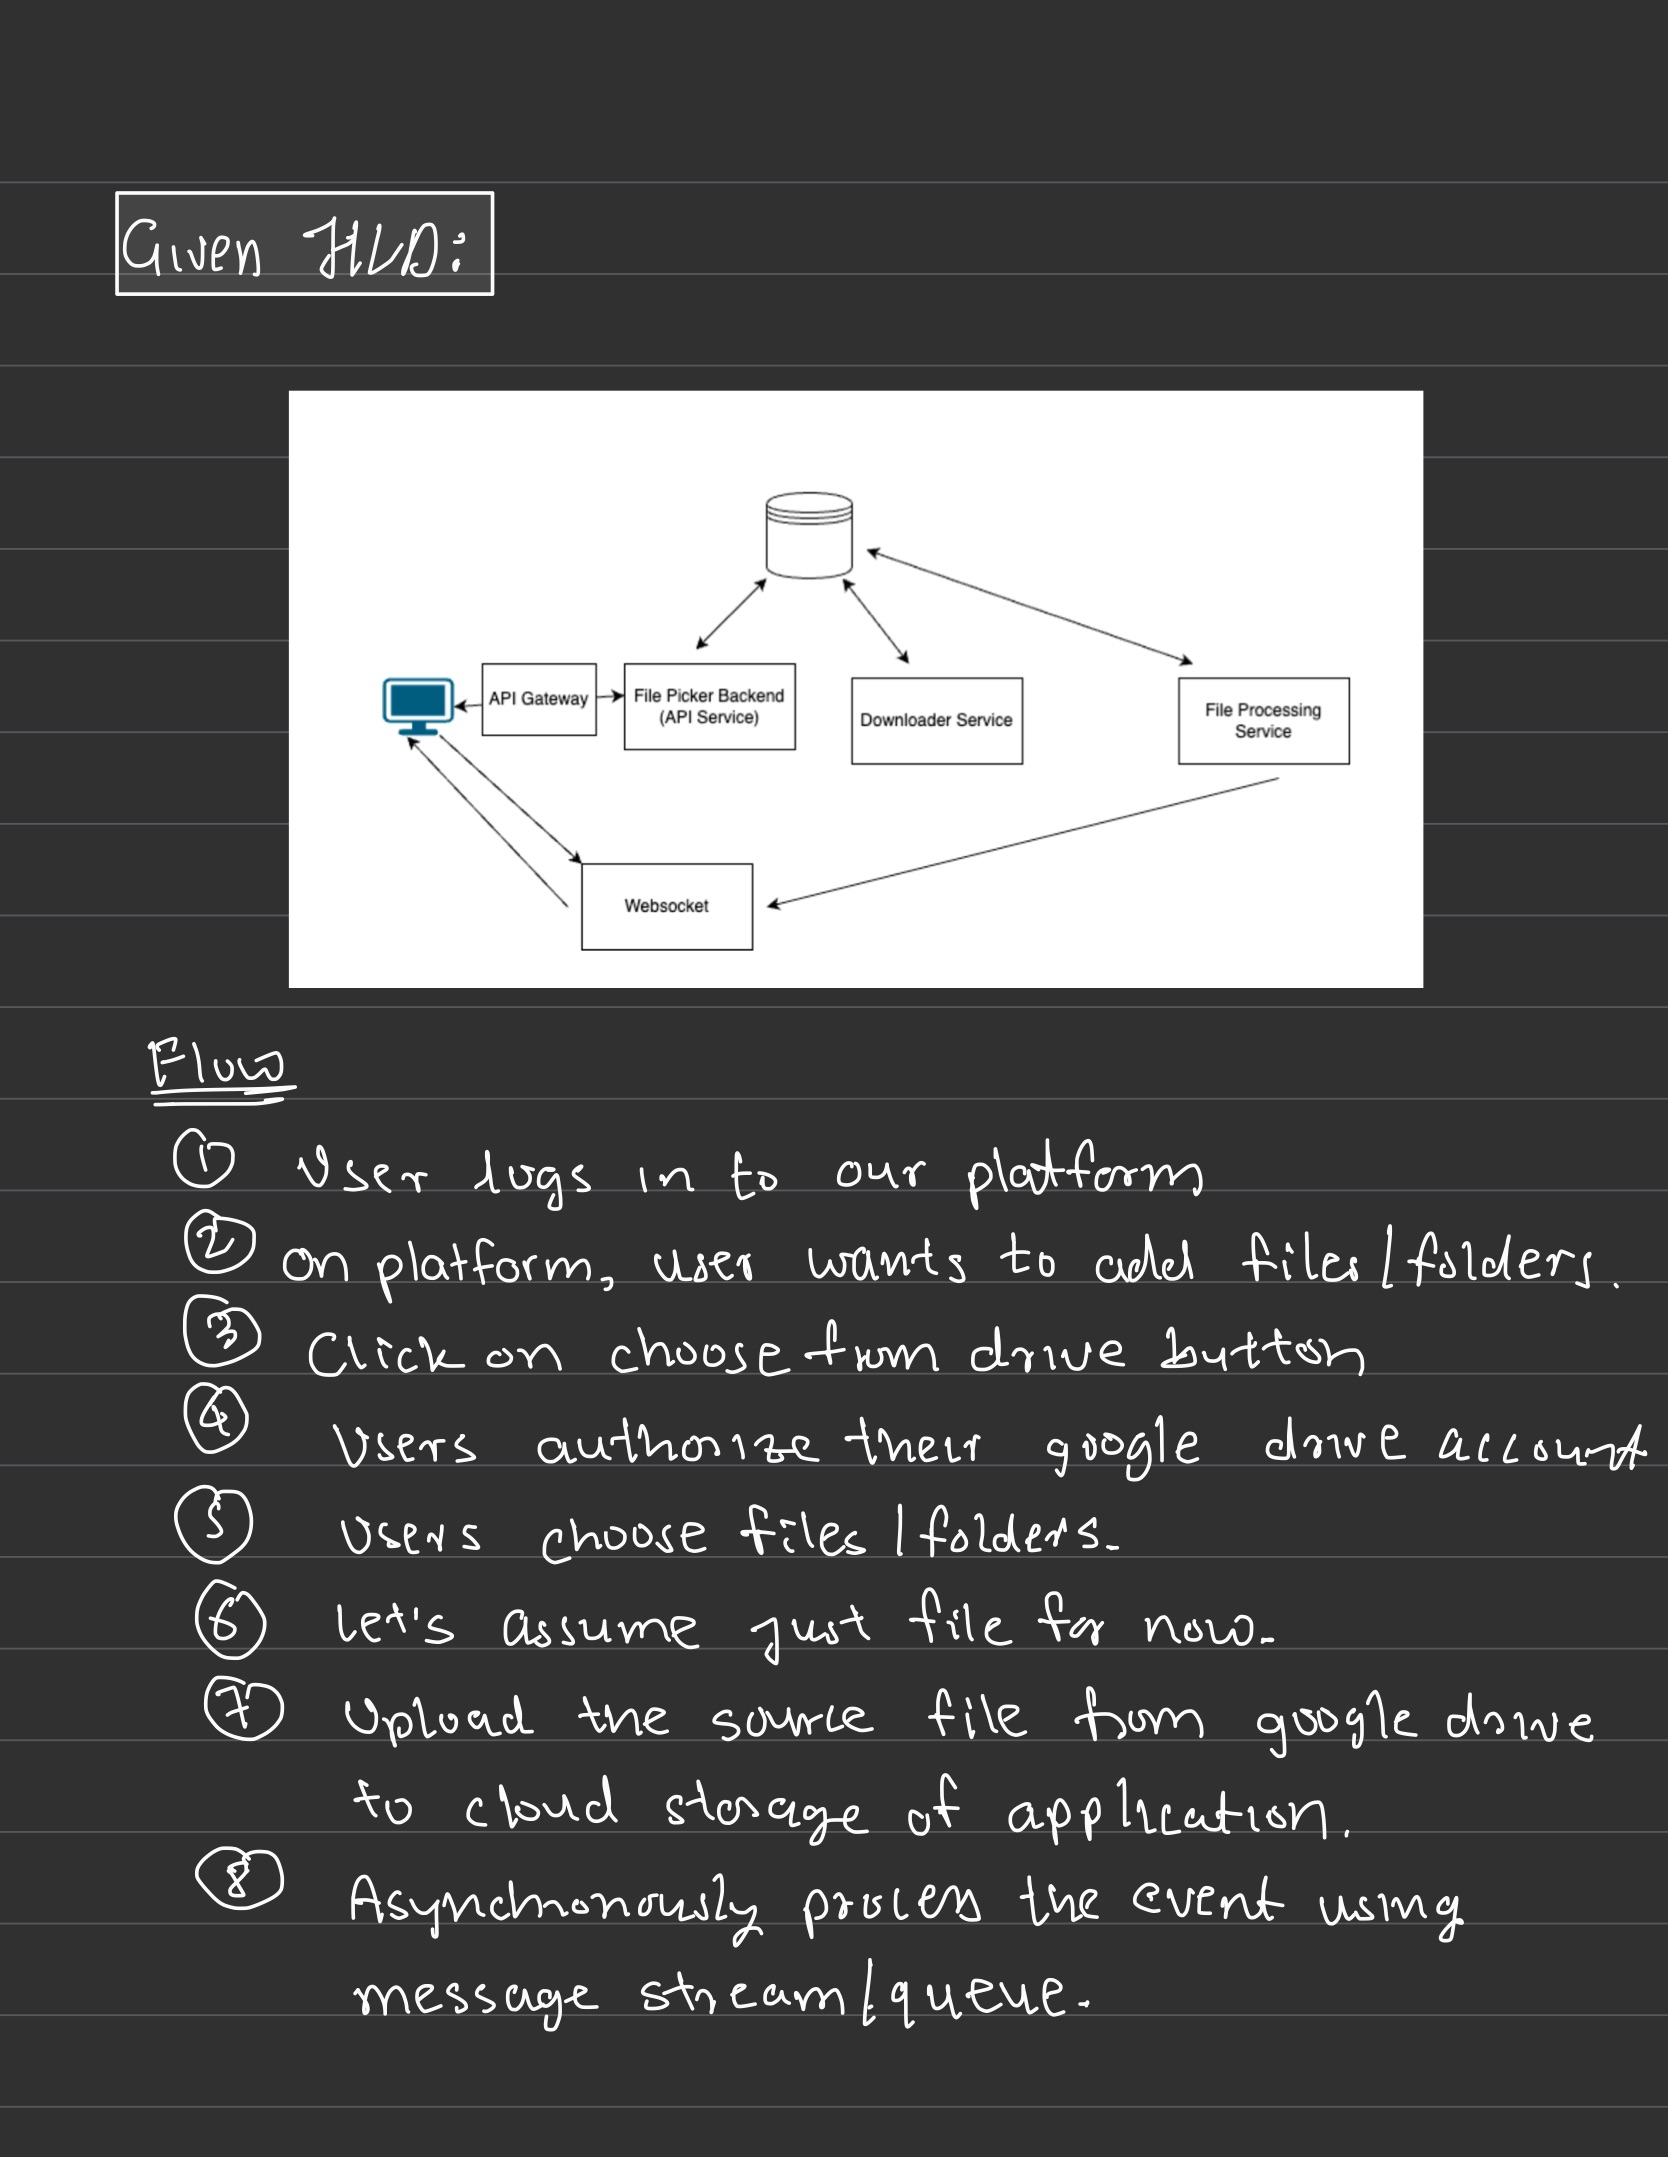 Given HLD:
API Gateway
File Picker Backend
(API Service)
Downloader Service
File Processing
Service
Websocket
Flow
① User logs in to our platform
② on platform, user wants to add files/folders.
③ Click on choose from drive button
④ Users authorize their google drive account
⑤ Users choose files/folders.
⑥ Let's assume just file for now.
⑦ Upload the source file from google drive
to cloud storage of application.
⑧ Asynchronously process the event using
message stream/queue.